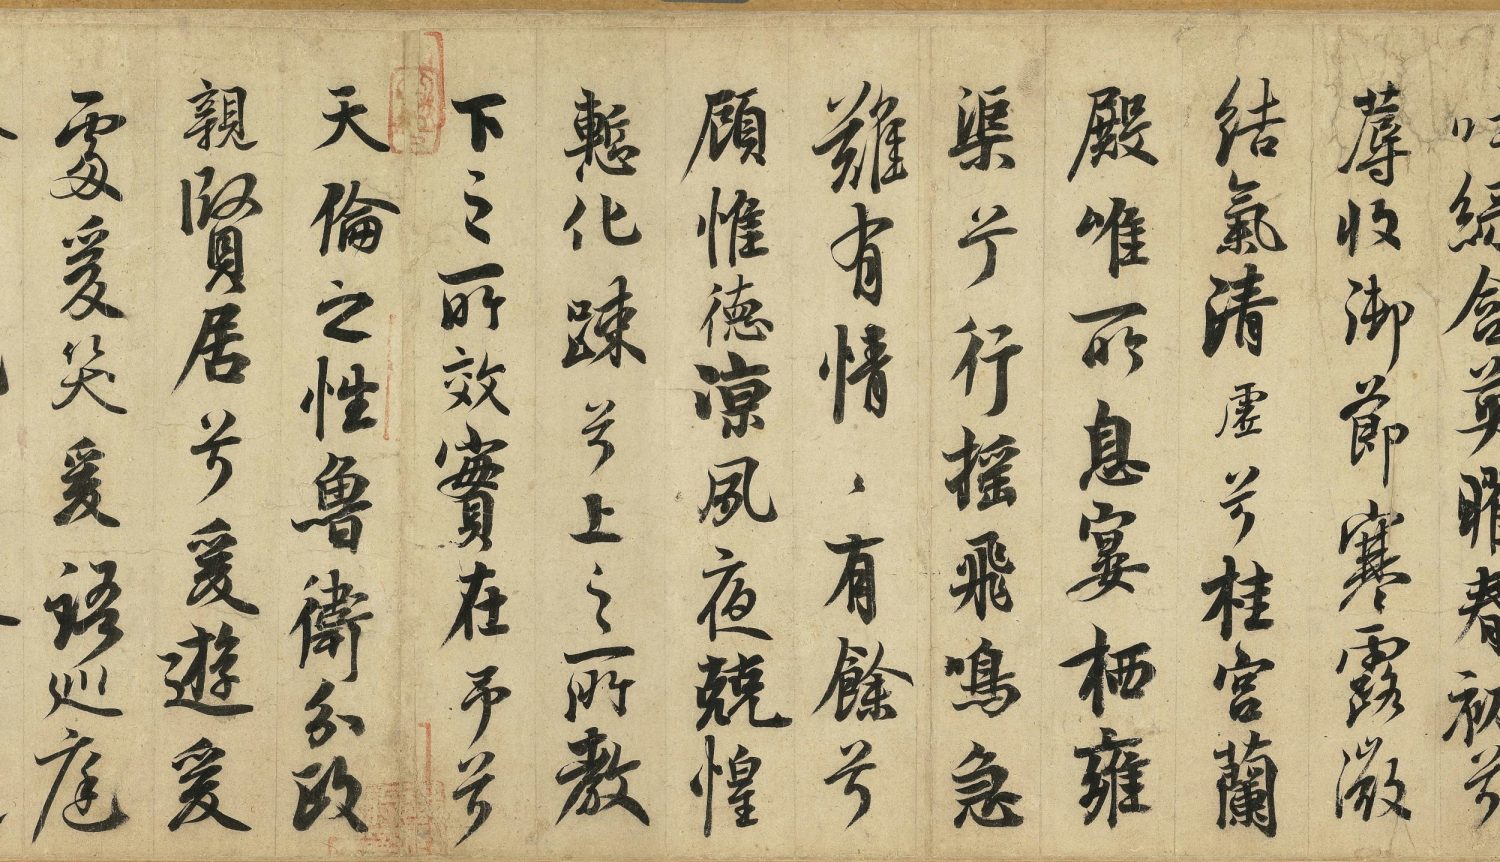 吐綠含英曜春初兮
蓐收御節寒露微
結氣清虛兮桂宮蘭
殿唯所息宴栖雍
渠兮行搖飛鳴急
難有情〻有餘兮
顧惟德涼夙夜兢惶
慙化踈兮上之所教
下之所效實在予兮
天倫之性魯衛分政
親賢居兮爰遊爰
處爰笑爰語巡庭